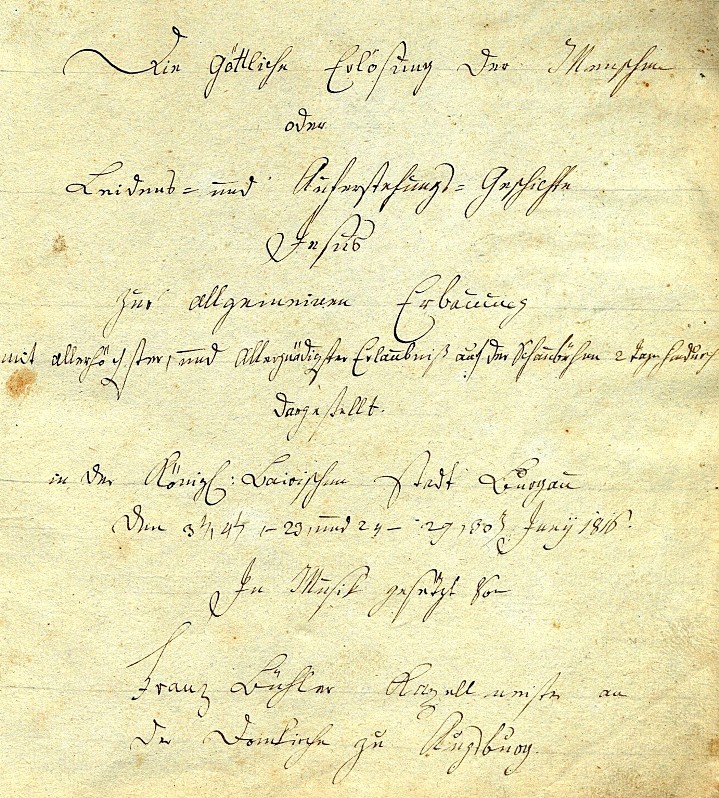 Die Göttliche Erlösung der Menschen
oder
Leidens= und Auferstehungs= Geschichte
Jesus
zur allgemeinen Erbauung
mit allerhöchster, und Allergnädigster Erlaubniß auf der Schaubühne 2 Tage hindurch
dargestellt.
in der Königl: Bairischen Stadt Burgau
Den 3t, 4t, - 23, und 24 - 29, 30t Juny 1816.
In Musik gesetzt von
Franz Bühler Kapellmeister an
der Domkirche zu Augsburg.